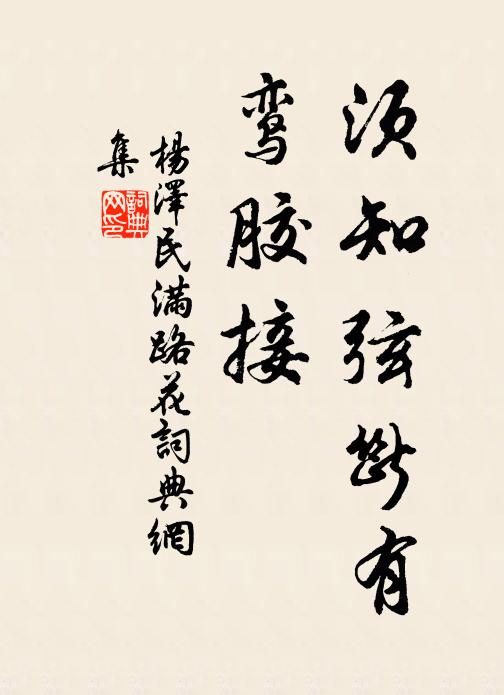 须知弦斷有
鸾胶接
楊澤民滿路花詞典網
集
詞典网印